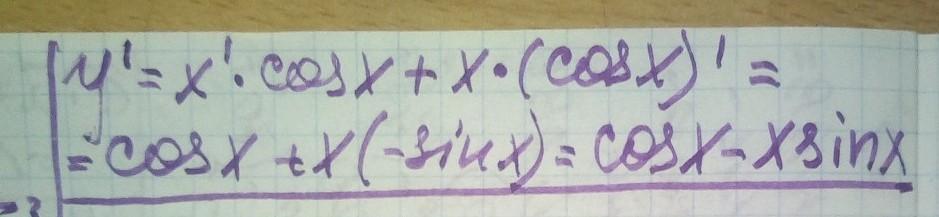 y' = x' · cosx + x · (cosx)' =
= cosx + x(-sinx) = cosx - xsinx